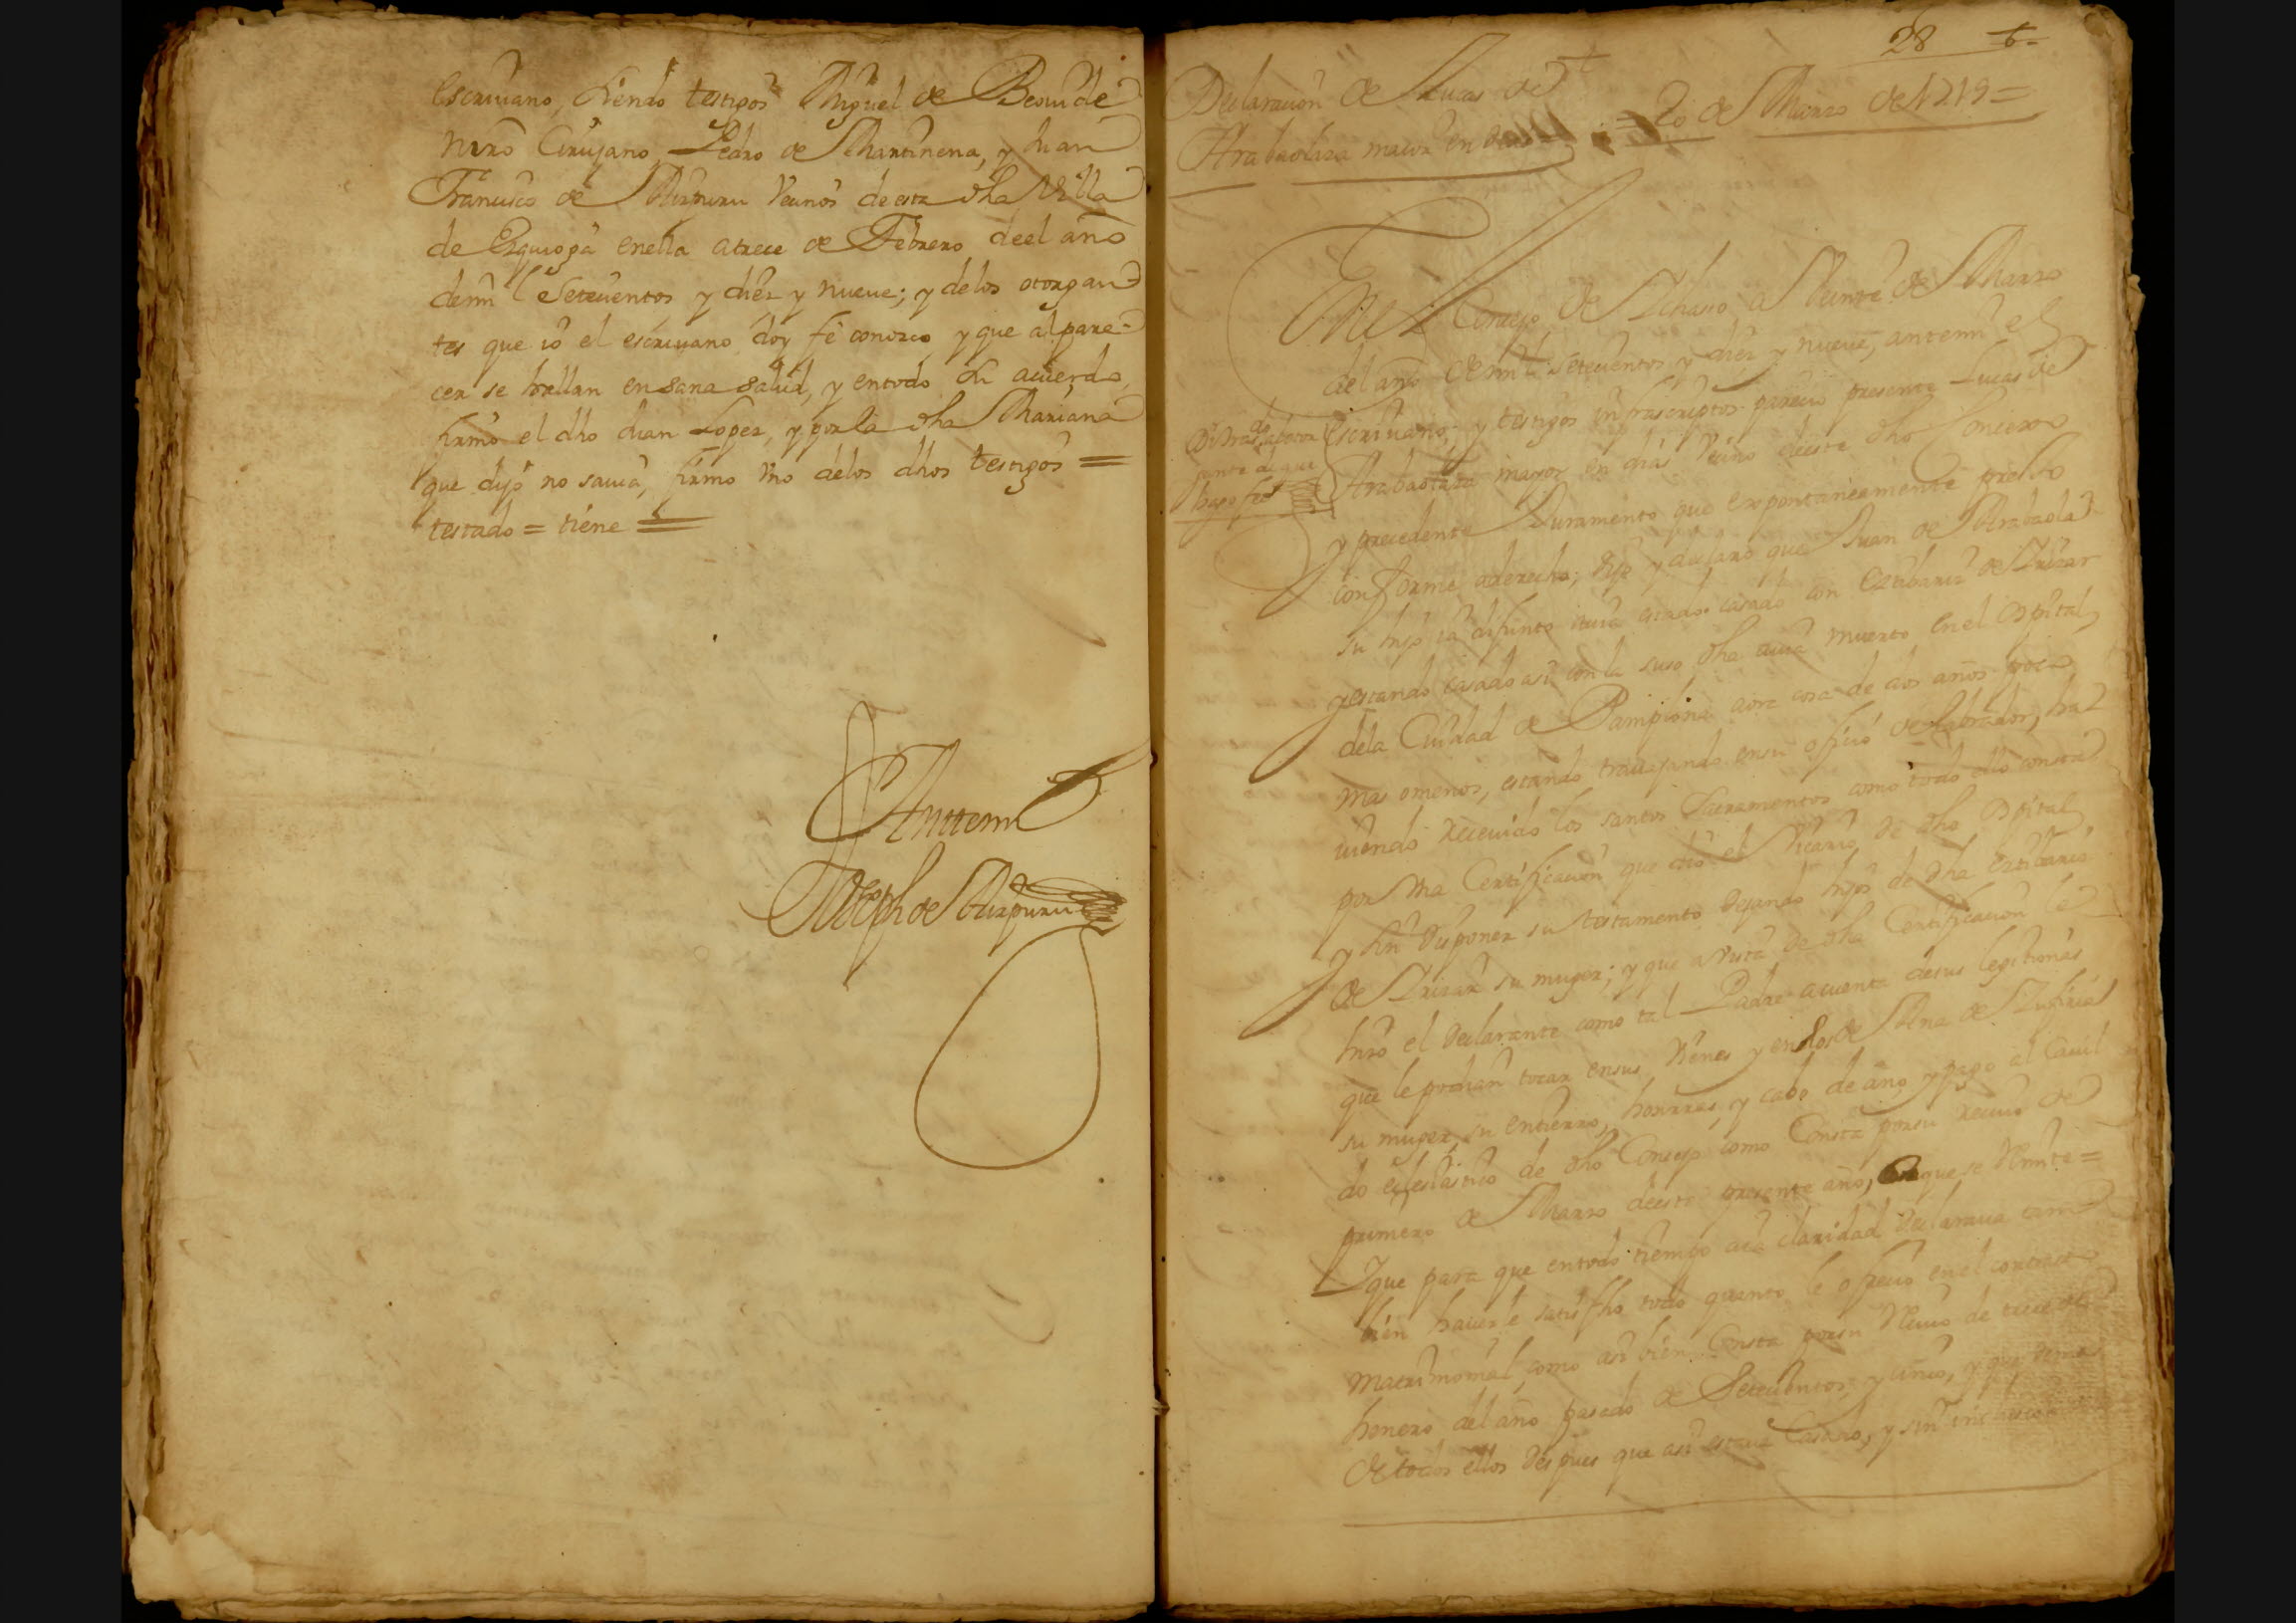 escriuano, siendo testigos Miguel de Beaunde
nuro Cirujano Pedro de Martinena, y Juan
Francisco de Aizpuru Vecinos de esta dha Villa
de Ezquioga en ella a trece de Febrero de el año
de mil Setecientos y diez y nueve; y de los otorgan
tes que io el escriuano doy fe conozco y que al pare-
cer se hallan en sana salud, y en todo su acuerdo,
firmo el dho Juan Lopez, y por la dha Mariana
que dijo no sauia, firmo vno de los dhos testigos =
testado = tiene =
Antemi
Joseph de Aizpuru
28
Declaracion de Lucas de
Arabaolaza maior en dias = 20 de Marzo de 1719 =
En el Concejo de Ichaso a Veinte de Marzo
del año de mil setecientos y diez y nueve, antemi el
escriuano, y testigos infrascriptos parecio presente Lucas de
Arabaolaza mayor en dias Vecino de este dho Concejo
y precedente Juramento que expontaneamente presto
conforme a derecho; dijo y declaro que Juan de Arabaola
su hijo ia difunto estado casado con Estibariz de Irizar
y estando casado asi con la suso dha auia muerto en el ospital
de la Ciudad de Pamplona aora cosa de dos años poco
mas o menos, estando trauajando en su oficio de labrador, ha
uiendo receuido los santos Sacramentos como todo ello consta
por vna Certificacion que dio el Vicario de dho ospital
y sin disponer su testamento dejando hijos de dha Estibariz
de Irizar su muger; y que a vista de dha Certificacion le
hizo el declarante como tal Padre a cuenta de sus legitimas
que le podian tocar en sus Vienes y en los de Ana de
su muger, su entierro, honrras, y cabo de año, y pago al Cauil
do eclesiastico de dho Concejo como Consta por su reciuo de
primero de Marzo de este presente año, que se Remite =
Y que para que en todo tiempo aia claridad declaraua tam
bien hauerle satisfho todo quanto le ofrecio en el contracto
Matrimonial, como asi bien Consta por su Reciuo de trece de
henero del año pasado de Setecientos y cinco, y que
de todos ellos despues que asi estaua Casado, y sin